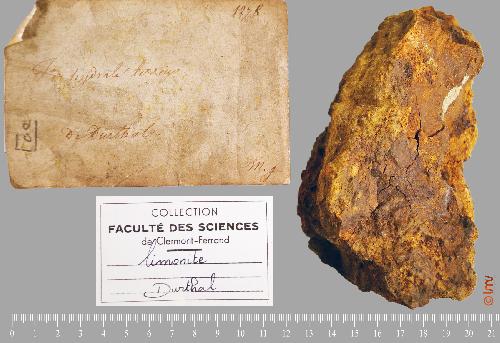 1278
fer hydraté terreux
de Durthal
COLLECTION
FACULTÉ DES SCIENCES
de Clermont-Ferrand
limonite
Durthal
0 1 2 3 4 5 6 7 8 9 10 11 12 13 14 15 16 17 18 19 20 21